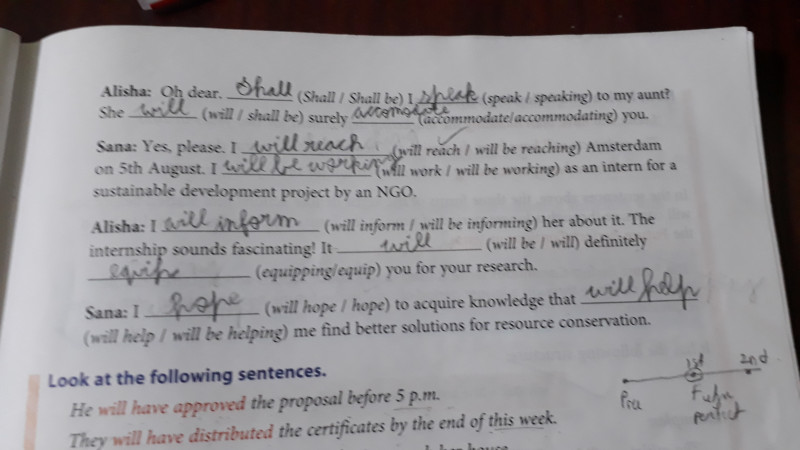 Alisha: Oh dear. Shall (Shall / Shall be) I speak (speak / speaking) to my aunt?
She will (will / shall be) surely accomodate (accommodate/accommodating) you.
Sana: Yes, please. I will reach (will reach / will be reaching) Amsterdam
on 5th August. I will be working (will work / will be working) as an intern for a
sustainable development project by an NGO.
Alisha: I will inform (will inform / will be informing) her about it. The
internship sounds fascinating! It will (will be / will) definitely
equip (equipping/equip) you for your research.
Sana: I hope (will hope / hope) to acquire knowledge that will help
(will help / will be helping) me find better solutions for resource conservation.
Look at the following sentences.
He will have approved the proposal before 5 p.m.
They will have distributed the certificates by the end of this week.
1st 2nd
perfect